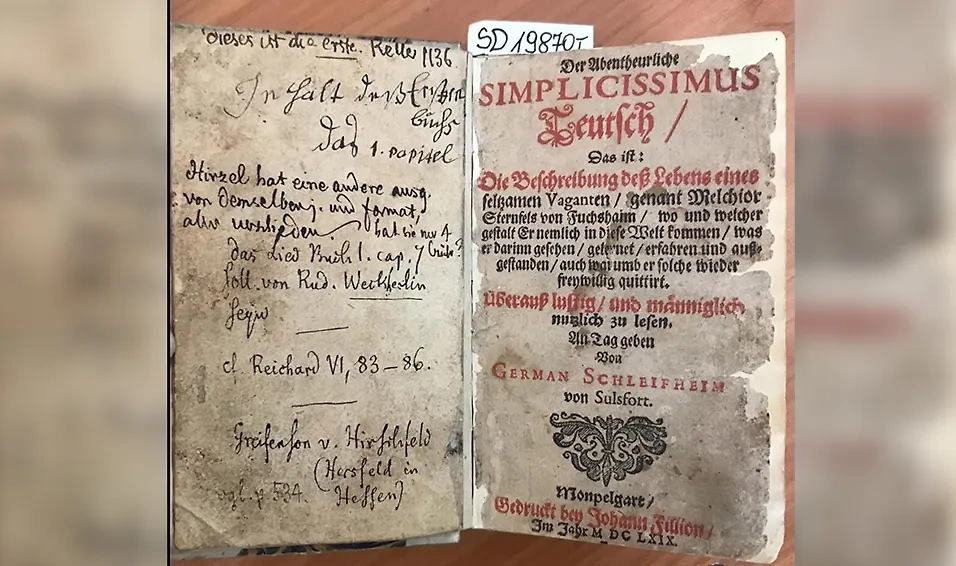 dieses ist die erste. Keller 1136
Inhalt deß Ersten
buchs
das 1. capitel
Hirzel hat eine andere ausg.
von demselben j. und format,
aber verschieden hat sie nur 4
das Lied Buch 1. cap. 7
soll von Rud. Weckherlin
seyn
cf. Reichard VI, 83–86.
Greifenson v. Hirschfeld
(Hersfeld in
vgl. p 534. Hessen)
SD 19870
Der Abentheurliche
SIMPLICISSIMUS
Teutsch /
Das ist:
Die Beschreibung deß Lebens eines
seltzamen Vaganten / genant Melchior
Sternfels von Fuchshaim / wo und welcher
gestalt Er nemlich in diese Welt kommen / was
er darinn gesehen / gelernet / erfahren und auß-
gestanden / auch warumb er solche wieder
freywillig quittirt.
Überauß lustig / und männiglich
nutzlich zu lesen.
An Tag geben
Von
GERMAN SCHLEIFHEIM
von Sulsfort.
Monpelgart /
Gedruckt bey Johann Fillion /
Im Jahr M DC LXIX.